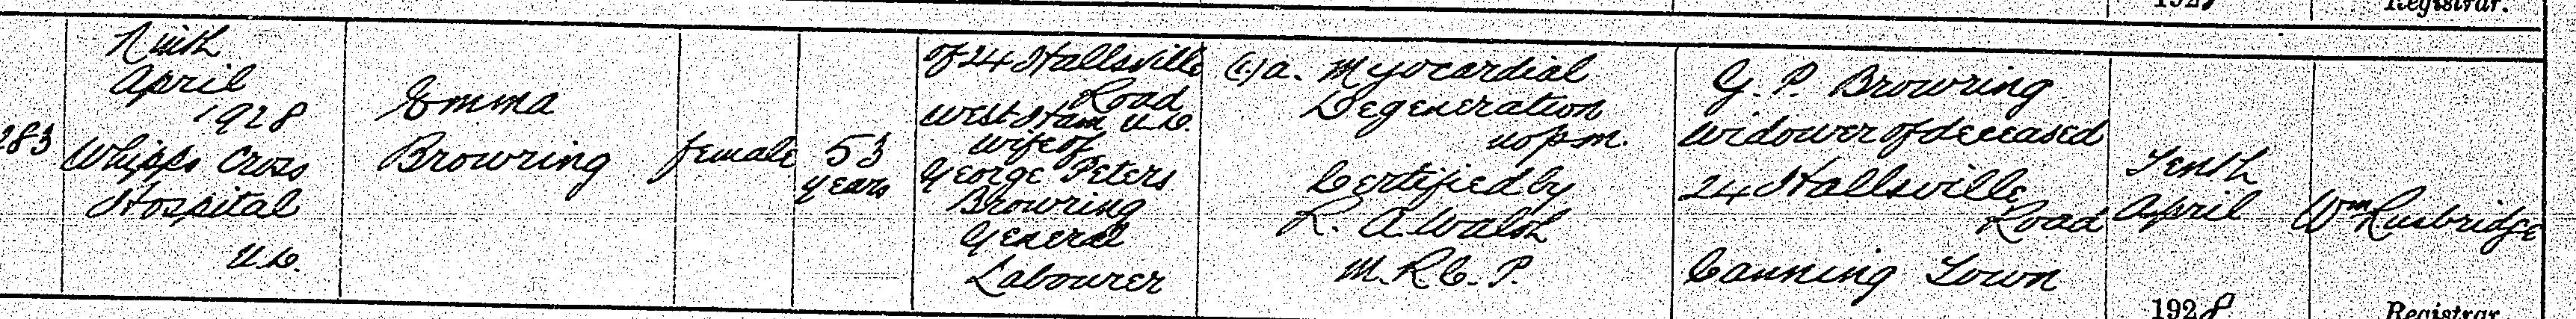 Registrar.
283
Ninth
April
1928
Whipps Cross
Hospital
U.D.
Emma
Browring
female
53
years
of 24 Hallsville
Road
West Ham U.D.
wife of
George Peters
Browring
General
Labourer
(1) a. Myocardial
Degeneration
no p.m.
Certified by
R. A. Walsh
M.R.C.P.
G. P. Browring
widower of deceased
24 Hallsville
Road
Canning Town
Tenth
April
1928
Wm Rusbridge
Registrar